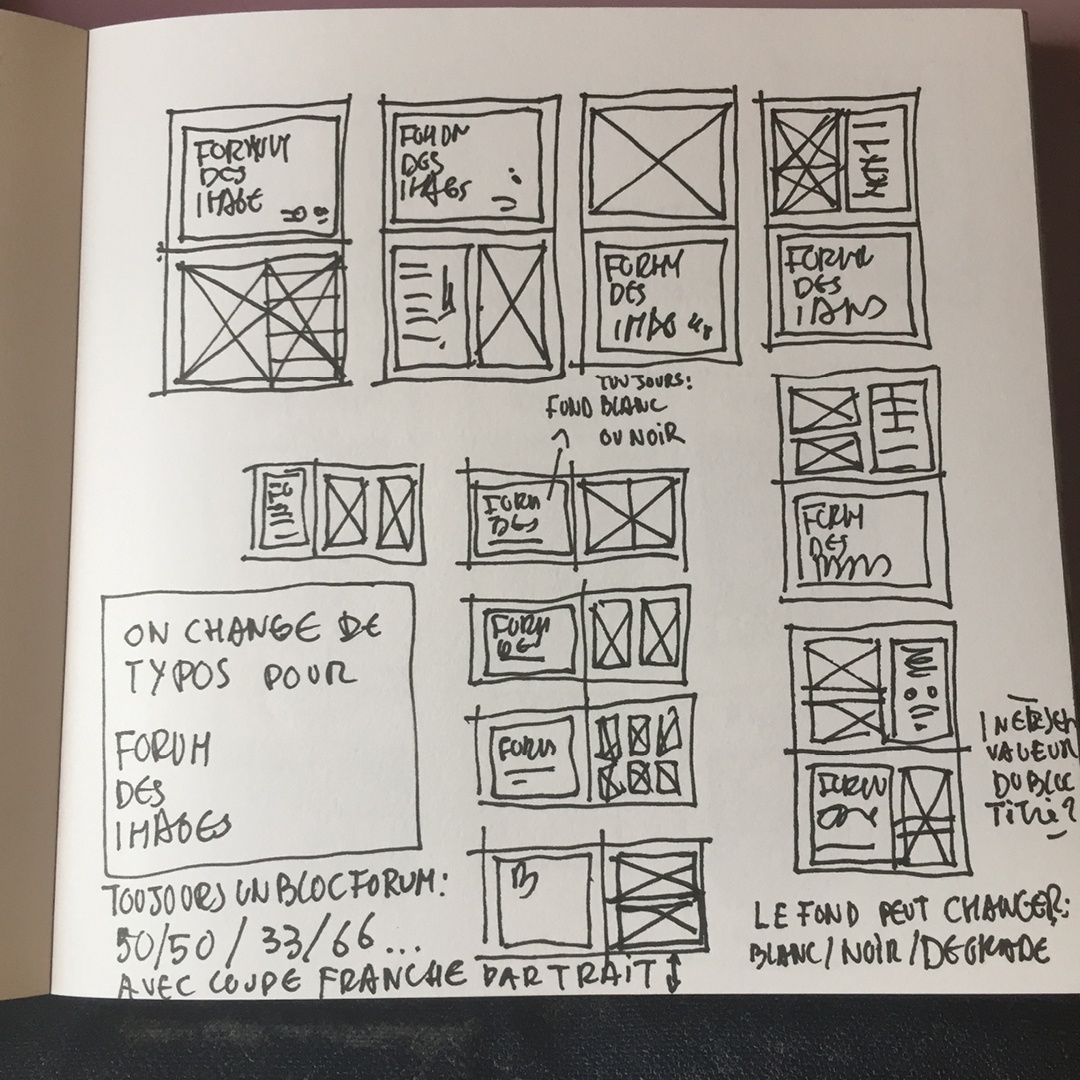 FORUM
DES
IMAGE
FORUM
DES
IMAGES
FORUM
DES
FORUM
DES
TOUJOURS:
FOND BLANC
OU NOIR
FORUM
DES
FORUM
DES
FORUM
DES
FORUM
ON CHANGE DE
TYPOS POUR
FORUM
DES
IMAGES
FORUM
VALEUR
DU BLOC
TITRE?
TOUJOURS UN BLOC FORUM:
50/50 / 33/66...
AVEC COUPE FRANCHE PAR TRAIT
LE FOND PEUT CHANGER:
BLANC/NOIR/DEGRADE